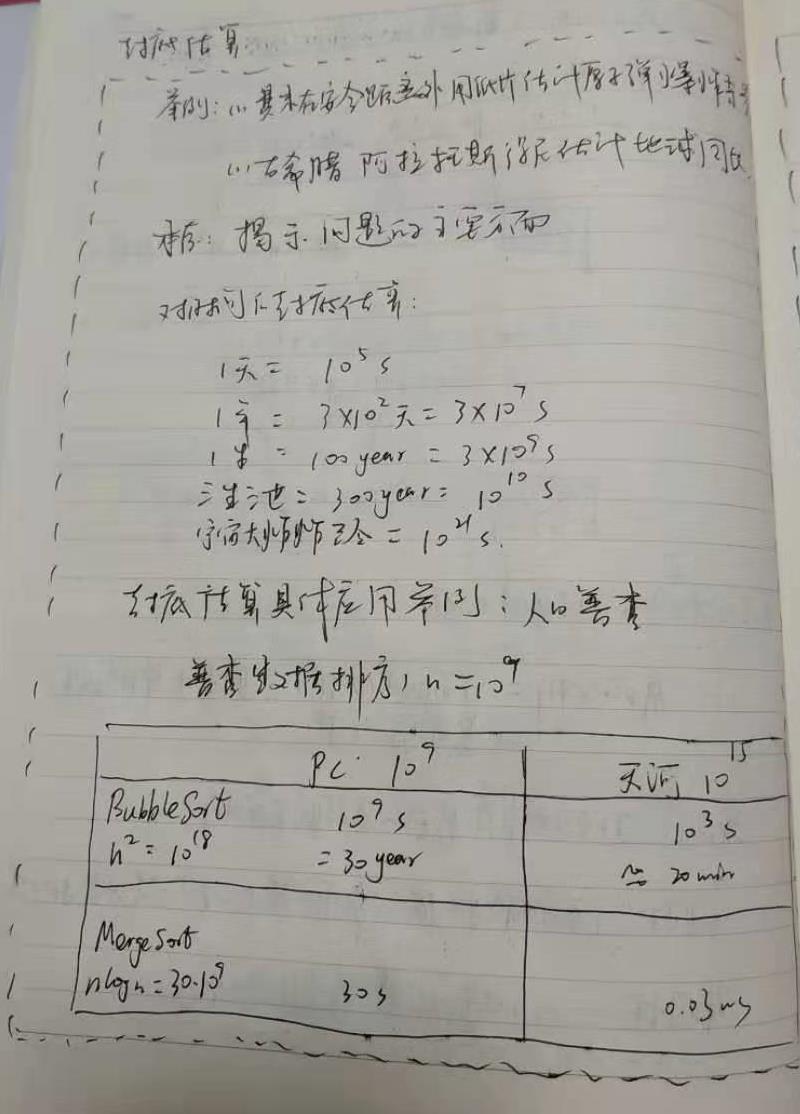 封底估算
举例: (1) 费米在安全距离外用纸片估计原子弹爆炸
(1) 古希腊 阿拉托斯 估计地球周长
本质: 揭示问题的主要方面
对时间的封底估算:
1天 = 10⁵ s
1年 = 3×10² 天 = 3×10⁷ s
1生 = 100 year = 3×10⁹ s
三生三世 = 300 year = 10¹⁰ s
宇宙大爆炸至今 = 10²¹ s.
封底估算具体应用举例: 人口普查
普查数据排序, n = 10⁹
PC 10⁹ 天河 10¹⁵
BubbleSort 10⁹ s 10³ s
n² = 10¹⁸ = 30 year ≈ 20 min
MergeSort
nlogn = 30·10⁹ 30s 0.03ms